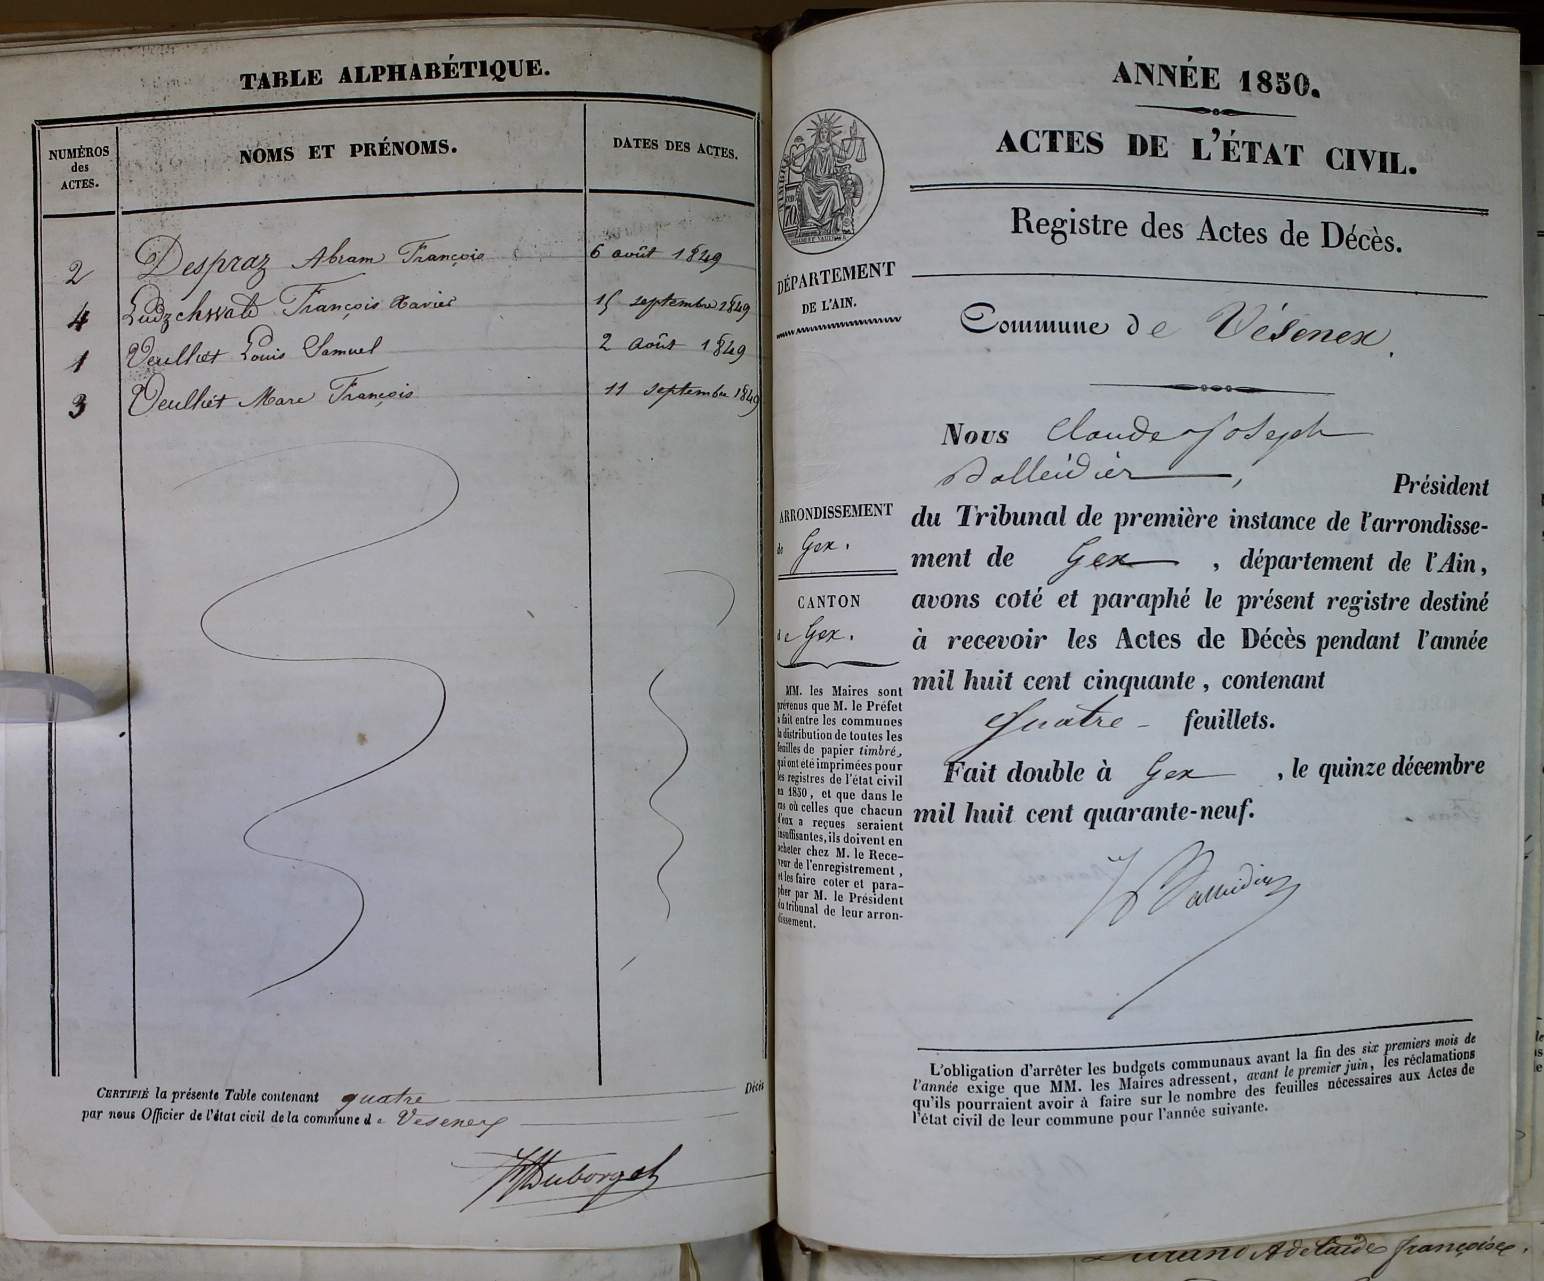 TABLE ALPHABÉTIQUE.
NUMÉROS
des
ACTES.
NOMS ET PRÉNOMS.
DATES DES ACTES.
2 Despraz Abram François 6 août 1849
4 François Xavier 15 septembre 1849
1 Veulhet Louis Samuel 2 août 1849
3 Veulhet Marc François 11 septembre 1849
CERTIFIÉ la présente Table contenant quatre Décès
par nous Officier de l'état civil de la commune de Vesenex
Duborget
ANNÉE 1850.
ACTES DE L'ÉTAT CIVIL.
Registre des Actes de Décès.
DÉPARTEMENT
DE L'AIN.
Commune de Vésenex.
ARRONDISSEMENT
de Gex.
CANTON
de Gex.
MM. les Maires sont
prévenus que M. le Préfet
a fait entre les communes
la distribution de toutes les
feuilles de papier timbré,
qui ont été imprimées pour
les registres de l'état civil
en 1850, et que dans le
cas où celles que chacun
d'eux a reçues seraient
insuffisantes, ils doivent en
acheter chez M. le Rece-
veur de l'enregistrement,
et les faire coter et para-
pher par M. le Président
du tribunal de leur arron-
dissement.
Nous Claude Joseph
Balleidier, Président
du Tribunal de première instance de l'arrondisse-
ment de Gex, département de l'Ain,
avons coté et paraphé le présent registre destiné
à recevoir les Actes de Décès pendant l'année
mil huit cent cinquante, contenant
quatre feuillets.
Fait double à Gex, le quinze décembre
mil huit cent quarante-neuf.
Balleidier
L'obligation d'arrêter les budgets communaux avant la fin des six premiers mois de
l'année exige que MM. les Maires adressent, avant le premier juin, les réclamations
qu'ils pourraient avoir à faire sur le nombre des feuilles nécessaires aux Actes de
l'état civil de leur commune pour l'année suivante.
Durand Adelaïde françoise.